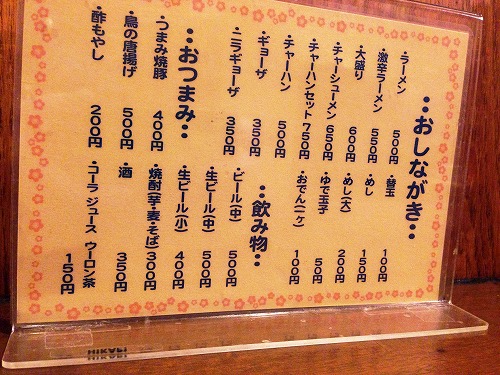 ‥おしながき‥
・ラーメン 500円
・激辛ラーメン 550円
・大盛り 600円
・チャーシューメン 650円
・チャーハンセット 750円
・チャーハン 500円
・ギョーザ 350円
・ニラギョーザ 350円
・替玉 100円
・めし 150円
・めし(大) 200円
・ゆで玉子 50円
・おでん(一ヶ) 100円
‥おつまみ‥
・つまみ焼豚 400円
・鳥の唐揚げ 500円
・酢もやし 200円
‥飲み物‥
・ビール(中) 500円
・生ビール(中) 500円
・生ビール(小) 400円
・焼酎芋・麦・そば 300円
・酒 350円
・コーラ ジュース ウーロン茶 150円